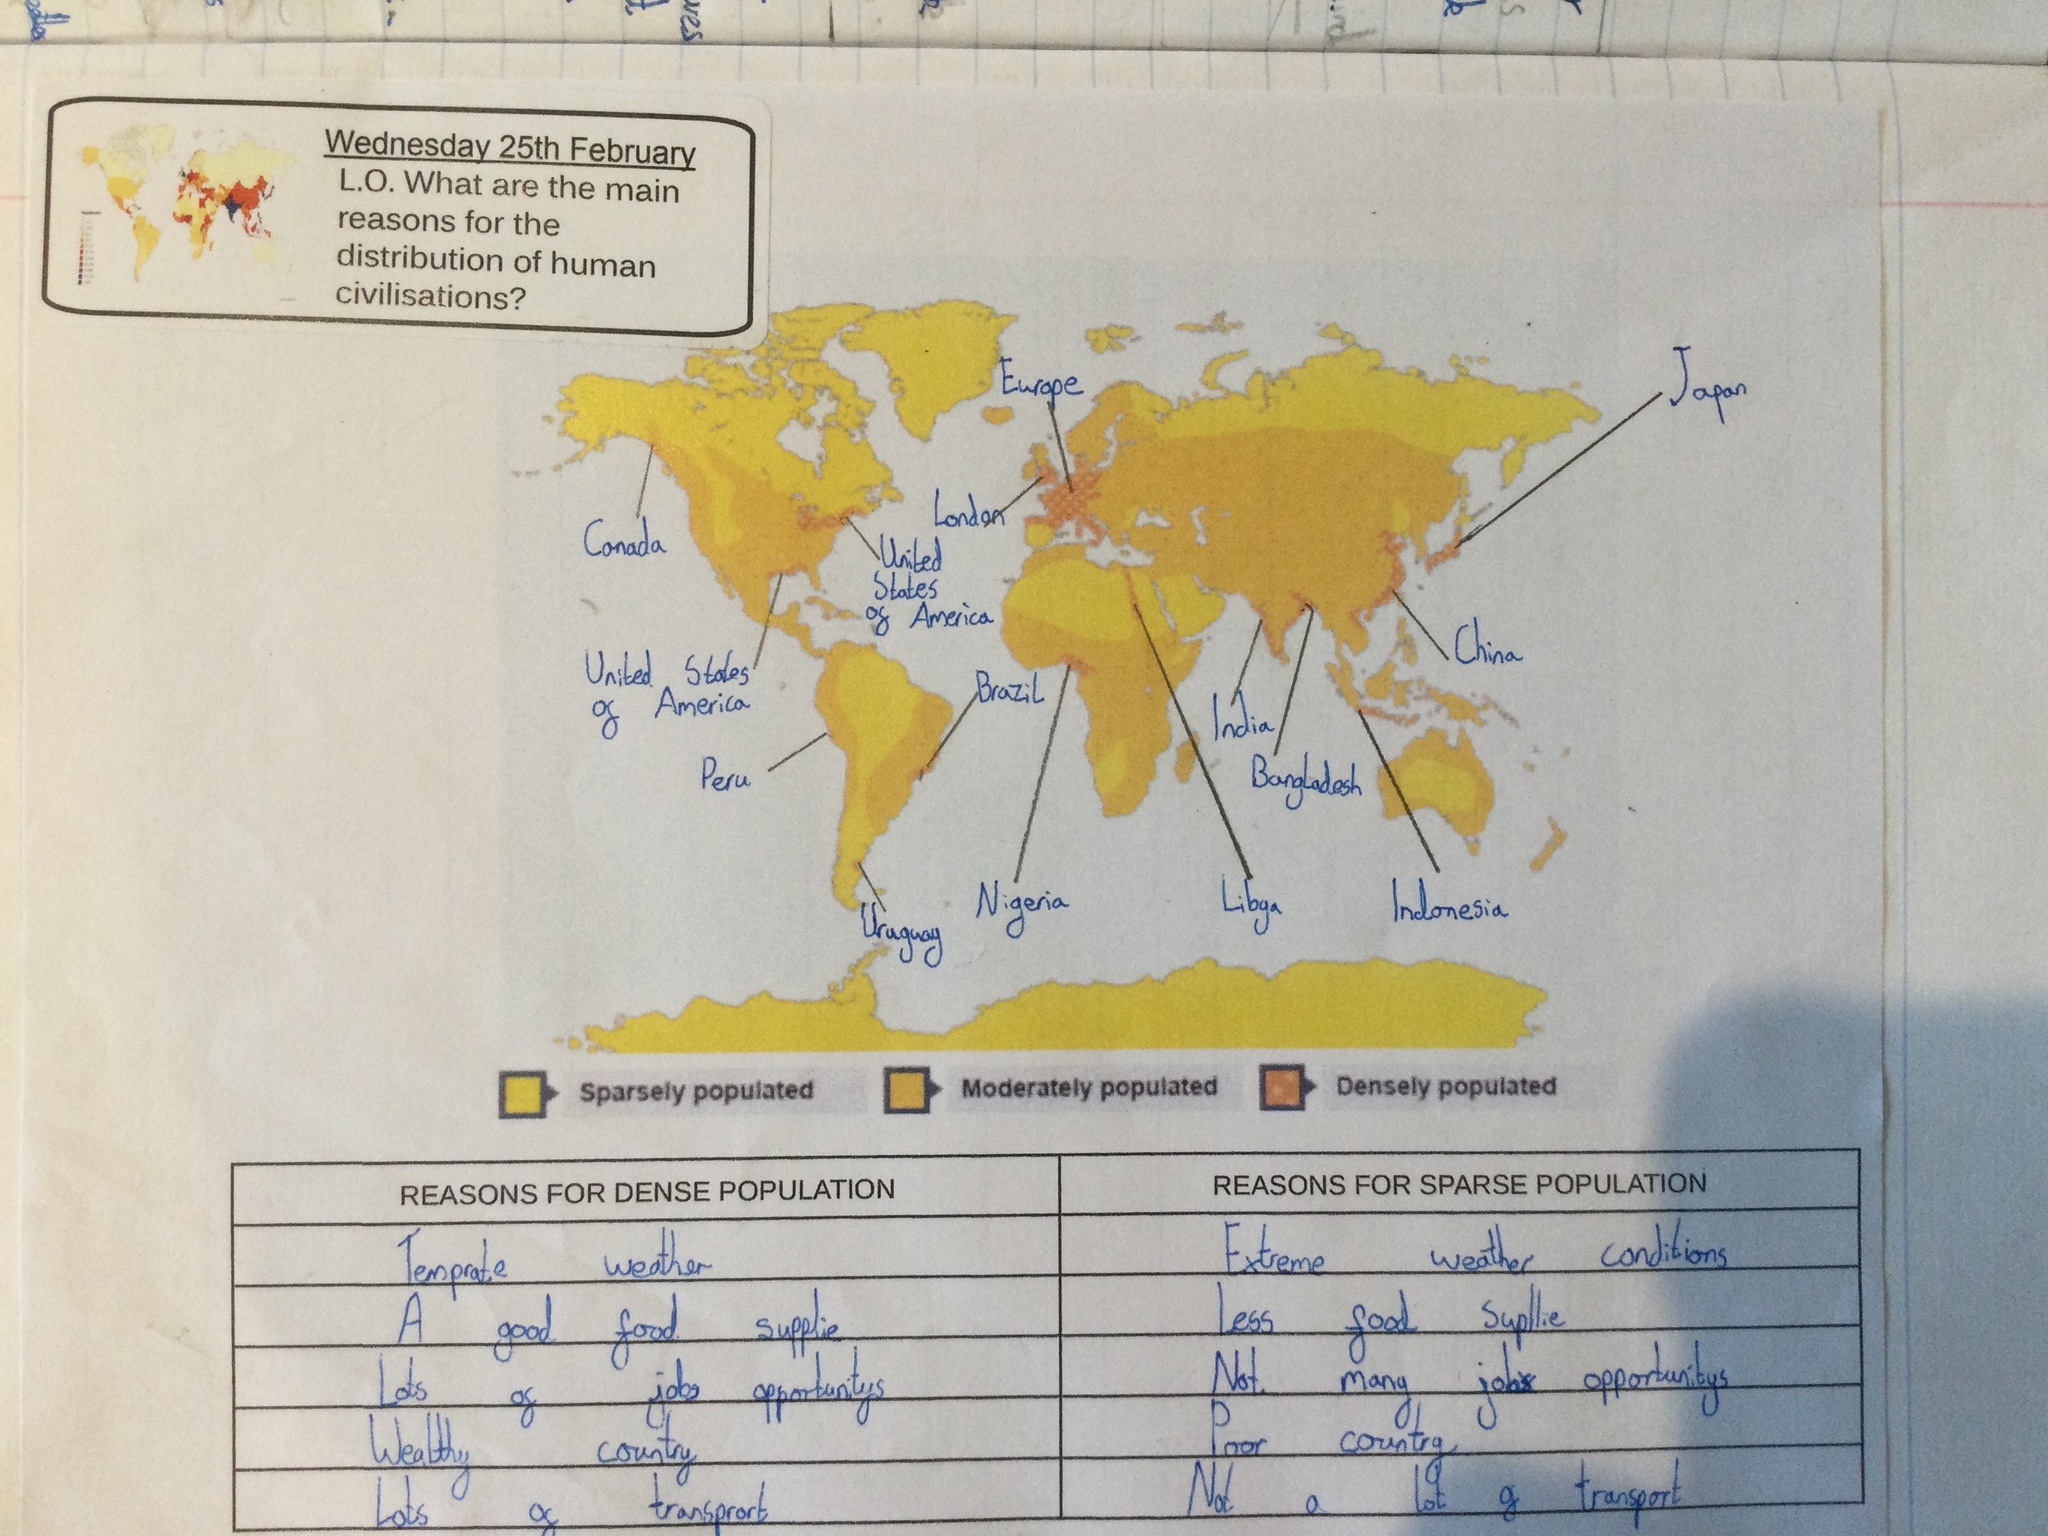 Wednesday 25th February
L.O. What are the main
reasons for the
distribution of human
civilisations?
Europe
Japan
London
Canada
United
States
of America
China
United States
of America
Brazil
India
Peru
Bangladesh
Nigeria
Libya
Indonesia
Uruguay
Sparsely populated
Moderately populated
Densely populated
REASONS FOR DENSE POPULATION
REASONS FOR SPARSE POPULATION
Temprate weather
Extreme weather conditions
A good food supplie
Less food Supllie
Lots of jobs opportunitys
Not many jobs opportunitys
Wealthy country
Poor country
Lots of transprort
Not a lot of transport